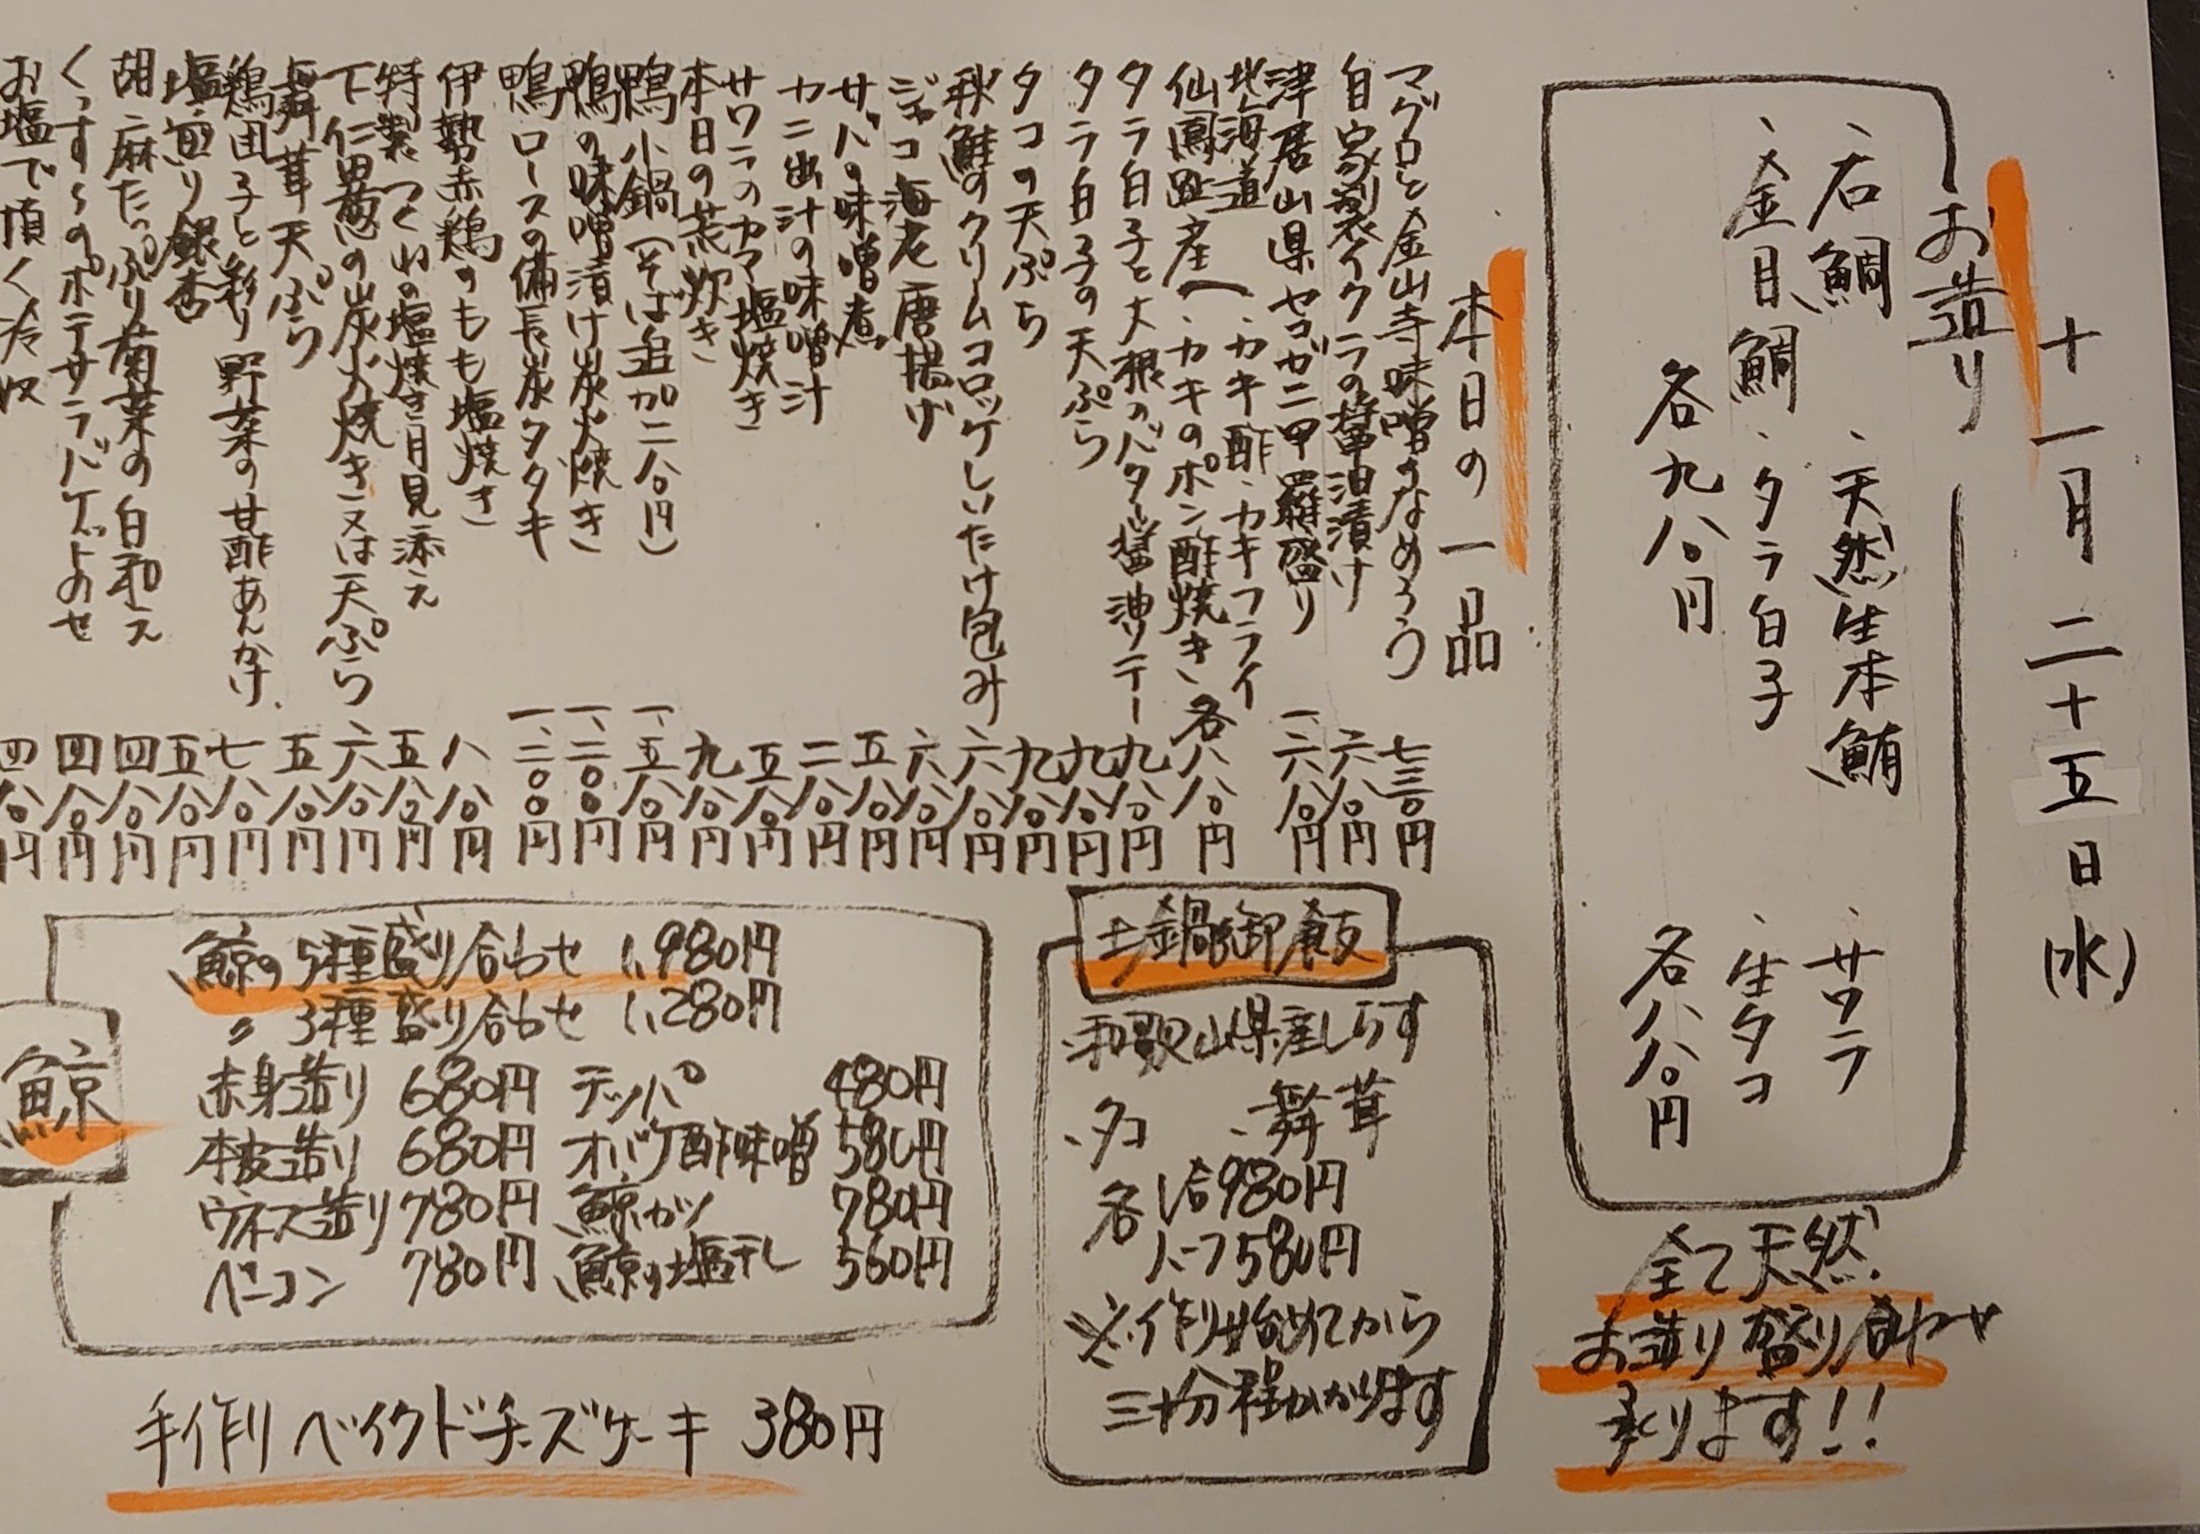 十一月二十五日(水)
お造り
、石鯛 、天然生本鮪 、サワラ
、金目鯛 、タラ白子 、生タコ
各九八〇円 各八八〇円
全て天然
お造り盛り合わせ
承ります!!
本日の一品
マグロと金山寺味噌のなめろう 七三〇円
自家製イクラの醤油漬け 六八〇円
津居山県セコガニ甲羅盛り 一、六八〇円
北海道 仙鳳趾産 (、カキ酢、カキフライ 、カキのポン酢焼き 各八八〇円
タラ白子と大根のバター醤油ソテー 九八〇円
タラ白子の天ぷら 九八〇円
タコの天ぷら 九八〇円
秋鮭のクリームコロッケしいたけ包み 六八〇円
ジャコ海老唐揚げ 六八〇円
サバの味噌煮 五八〇円
カニ出汁の味噌汁 二八〇円
サワラのカマ塩焼き 五八〇円
本日の荒炊き 九八〇円
鴨小鍋(そば追加二八〇円) 一、五八〇円
鴨の味噌漬け炭火焼き 一、二〇〇円
鴨ロースの備長炭タタキ 一、二〇〇円
伊勢赤鶏のもも塩焼き 八八〇円
特製つくねの塩焼き月見添え 五八〇円
下仁田葱の炭火焼き又は天ぷら 六八〇円
舞茸天ぷら 五八〇円
鶏団子と彩り野菜の甘酢あんかけ 七八〇円
塩煎り銀杏 五八〇円
胡麻たっぷり菊菜の白和え 四八〇円
くっす〜のポテサラバゲットのせ 四八〇円
お塩で頂く冷奴 四八〇円
土鍋御飯
、和歌山県産しらす
、タコ 、舞茸
各 1合980円
ハーフ580円
※作り始めてから
三十分程かかります
鯨
鯨の5種盛り合わせ 1,980円
〃 3種盛り合わせ 1,280円
赤身造り 680円 テッパ 480円
本皮造り 680円 オバケ酢味噌 580円
ウネス造り 780円 鯨カツ 780円
ベーコン 780円 鯨の塩干し 560円
手作りベイクドチーズケーキ 380円